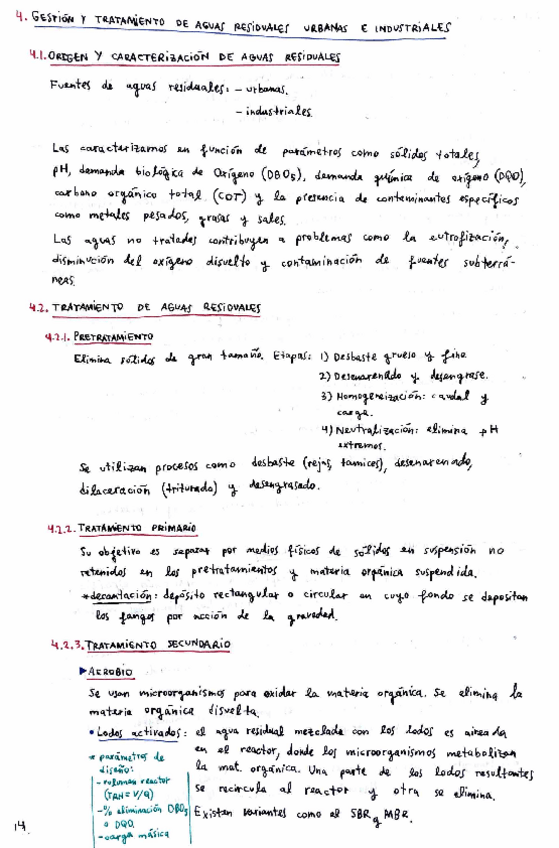 4. GESTIÓN Y TRATAMIENTO DE AGUAS RESIDUALES URBANAS E INDUSTRIALES
4.1. ORIGEN Y CARACTERIZACIÓN DE AGUAS RESIDUALES
Fuentes de aguas residuales: - urbanas.
- industriales.
Las caracterizamos en función de parámetros como sólidos totales,
pH, demanda biológica de Oxígeno (DBO5), demanda química de oxígeno (DQO),
carbono orgánico total (COT) y la presencia de contaminantes específicos
como metales pesados, grasas y sales.
Las aguas no tratadas contribuyen a problemas como la eutrofización,
disminución del oxígeno disuelto y contaminación de fuentes subterrá-
neas.
4.2. TRATAMIENTO DE AGUAS RESIDUALES
4.2.1. PRETRATAMIENTO
Elimina sólidos de gran tamaño. Etapas: 1) Desbaste grueso y fino
2) Desenarenado y desengrase.
3) Homogeneización: caudal y
carga.
4) Neutralización: elimina pH
extremos.
Se utilizan procesos como desbaste (rejas, tamices), desenarenado,
dilaceración (triturado) y desengrasado.
4.2.2. TRATAMIENTO PRIMARIO
Su objetivo es separar por medios físicos de sólidos en suspensión no
retenidos en los pretratamientos y materia orgánica suspendida.
*decantación: depósito rectangular o circular en cuyo fondo se depositan
los fangos por acción de la gravedad.
4.2.3. TRATAMIENTO SECUNDARIO
▶ AEROBIO
Se usan microorganismos para oxidar la materia orgánica. Se elimina la
materia orgánica disuelta.
• Lodos activados: el agua residual mezclada con los lodos es aireada
en el reactor, donde los microorganismos metabolizan
la mat. orgánica. Una parte de los lodos resultantes
se recircula al reactor y otra se elimina.
Existen variantes como el SBR y MBR.
* parámetros de
diseño:
- volumen reactor
(TRH = V/Q)
- % eliminación DBO5
o DQO
- carga másica
14